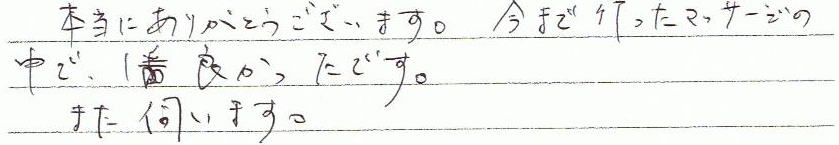 本当にありがとうございます。 今まで行ったマッサージの
中で、1番良かったです。
また伺います。